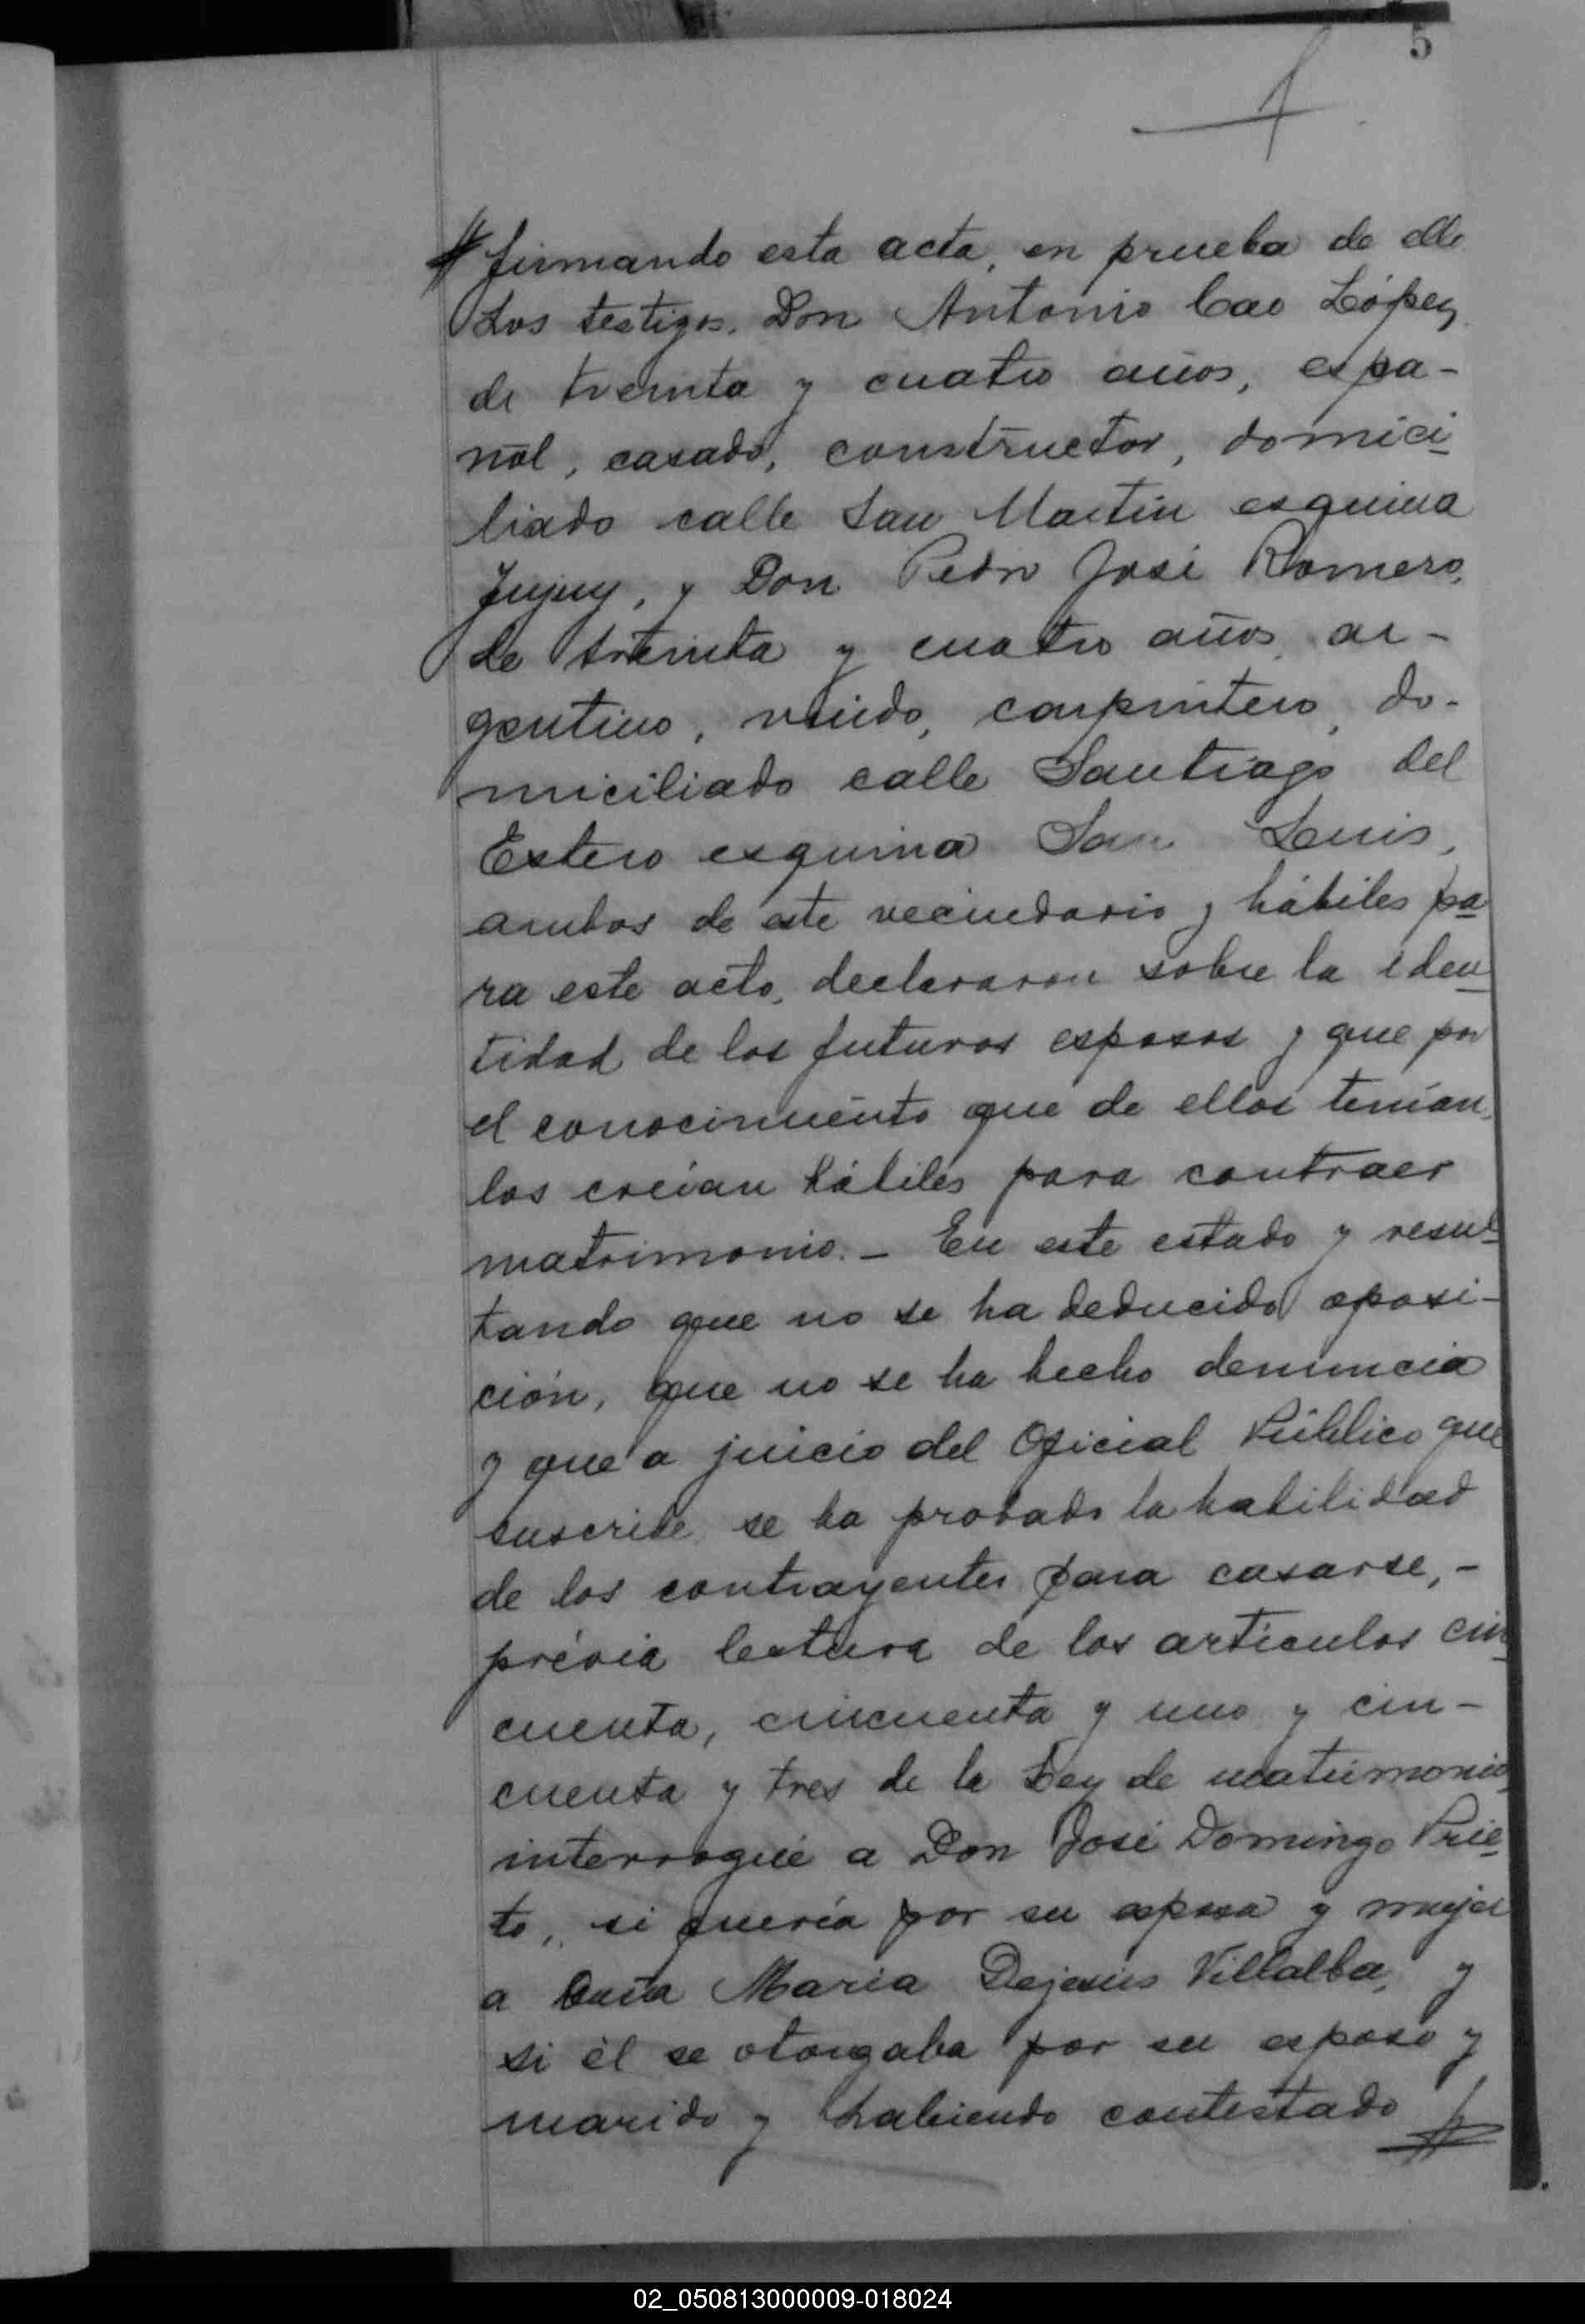 5
firmando esta acta, en prueba de ello
Los testigos, Don Antonio Cao López,
de treinta y cuatro años, espa-
ñol, casado, constructor, domici-
liado calle San Martin esquina
Jujuy, y Don Pedro José Romero,
de treinta y cuatro años, ar-
gentino, viudo, carpintero, do-
miciliado calle Santiago del
Estero esquina San Luis,
ambos de este vecindario y hábiles pa
ra este acto, declararon sobre la iden
tidad de los futuros esposos y que por
el conocimiento que de ellos tenían
los creían hábiles para contraer
matrimonio. - En este estado y resul
tando que no se ha deducido oposi-
ción, que no se ha hecho denuncia
y que a juicio del Oficial Público que
suscribe se ha probado la habilidad
de los contrayentes para casarse, -
prévia lectura de los artículos cin
cuenta, cincuenta y uno y cin-
cuenta y tres de la Ley de matrimonio,
interrogué a Don José Domingo Prie
to, si quería por su esposa y mujer
a María Dejesús Villalba, y
si él se otorgaba por su esposo y
marido y habiendo contestado
02_050813000009-018024